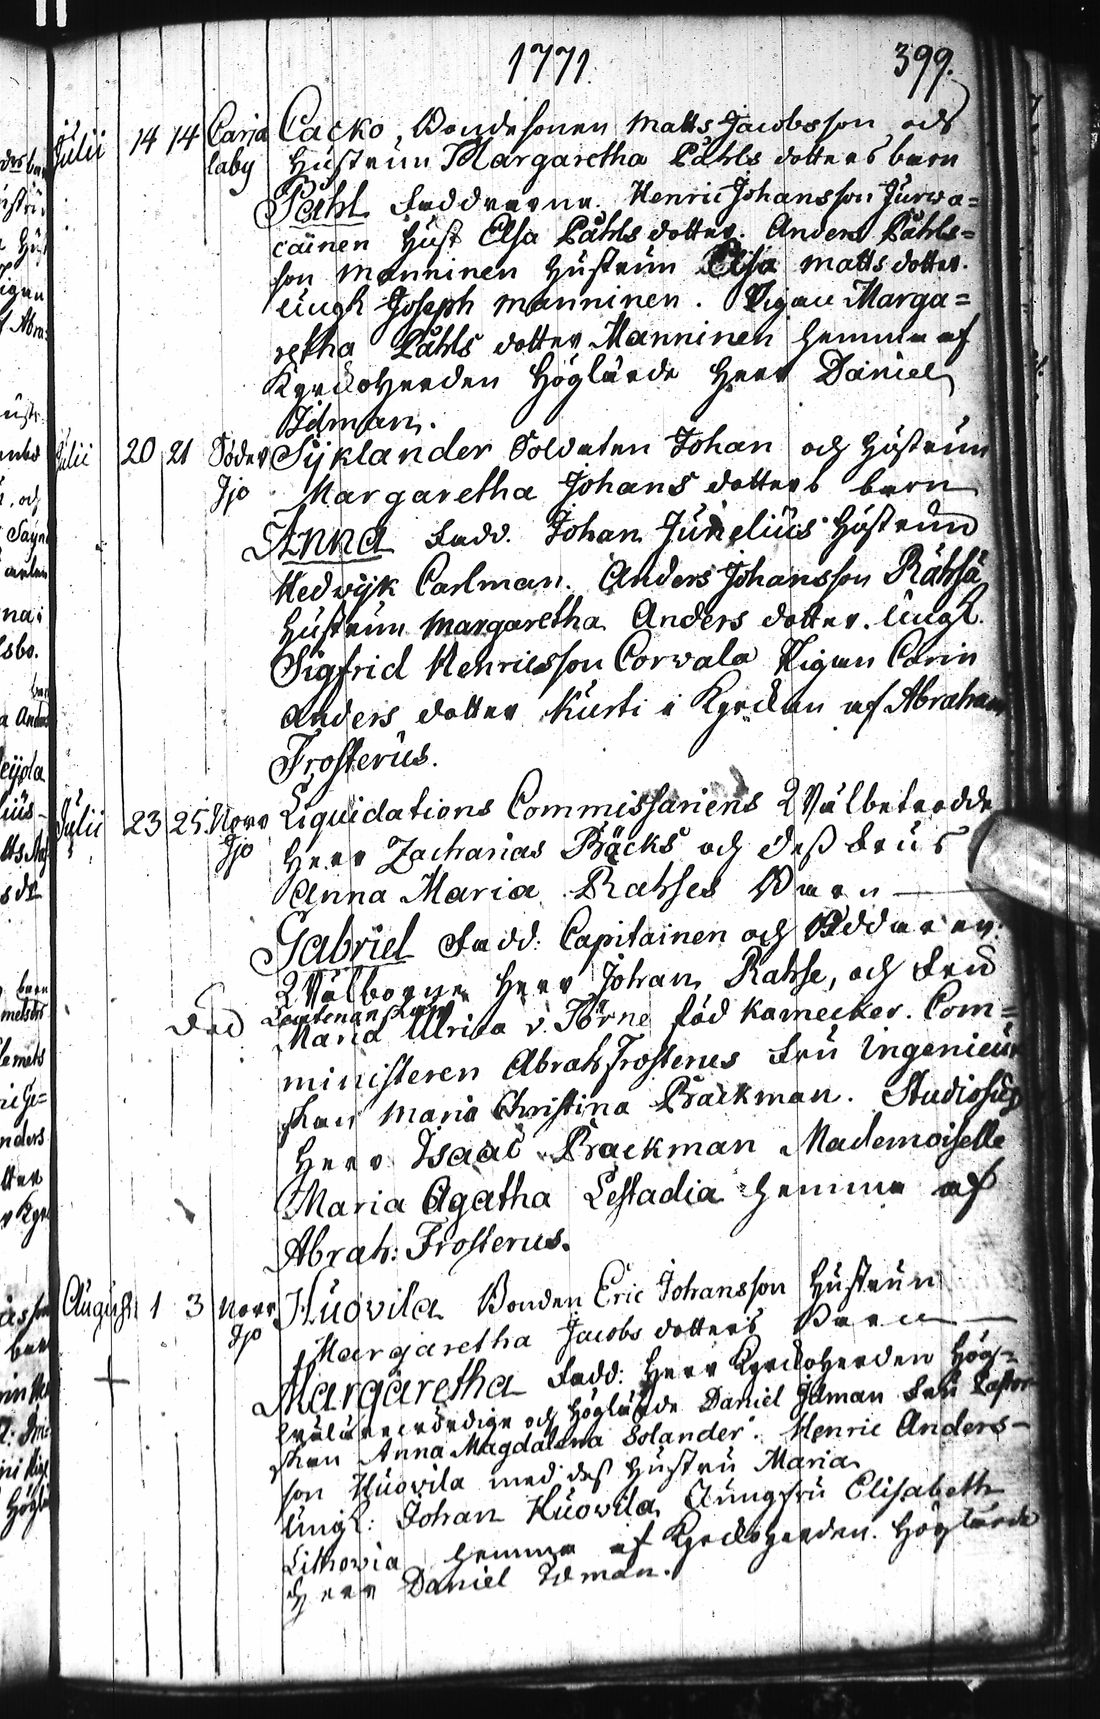 1771. 399.
Julii 14 14 Carja Cacko, Bondesonen Matts Jacobsson och
laby Hustrun Margaretha Påhls dotters barn
Påhl Faddrarne. Henric Johansson Jurwa=
cainen Hust Elsa Påhls dotter. Anders Påhls=
son Manninen Hustrun Elisa Matts dotter.
ungk Joseph Manninen. Pigan Marga=
retha Påhls dotter Manninen hemma af
Kyrckoherden Höglärde Herr Daniel
Idman.
Julii 20 21 Söder Syklander Soldaten Johan och Hustrun
Jjo Margaretha Johans dotters barn
Anna Fadd. Johan Junelius Hustrun
Hedwijk Carlman. Anders Johansson Råhsä
Hustrun Margaretha Anders dotter. Ungk.
Sigfrid Henricsson Corvala Pigan Carin
Anders dotter Kurti i Kyrckan af Abraham
Frosterus.
Julii 23 25. Norr Liquidations Commissariens Wälbetrodde
Jjo Herr Zacharias Bäcks och dess Frus
Anna Maria Rahses Barn
Gabriel Fadd: Capitainen och Riddaren
Wälborne Herr Johan Rahse, och Fru
Lieutenanskan
Maria Ulrica v. Törne född Kamecker. Com=
ministeren Abrah Frosterus Fru Ingenieur
skan Maria Christina Brackman. Studiosus
Herr Isaac Brackman Mademoiselle
Maria Agatha Lestadia hemma af
Abrah: Frosterus.
Augusti 1 3 Norr Huovila Bonden Eric Johansson Hustrun
Jjo Margaretha Jacobs dotters Barn
Margaretha Fadd: Herr Kyrckoherden Hög=
wälärewördige och Höglärde Daniel Idman Fru Pastor
skan Anna Magdalena Solander. Henric Anders-
son Huovila med dess Hustru Maria
Ungk: Johan Huovila Jungfru Elisabeth
Lithovia hemma af Kyrckoherden. Höglärde
Herr Daniel Idman.